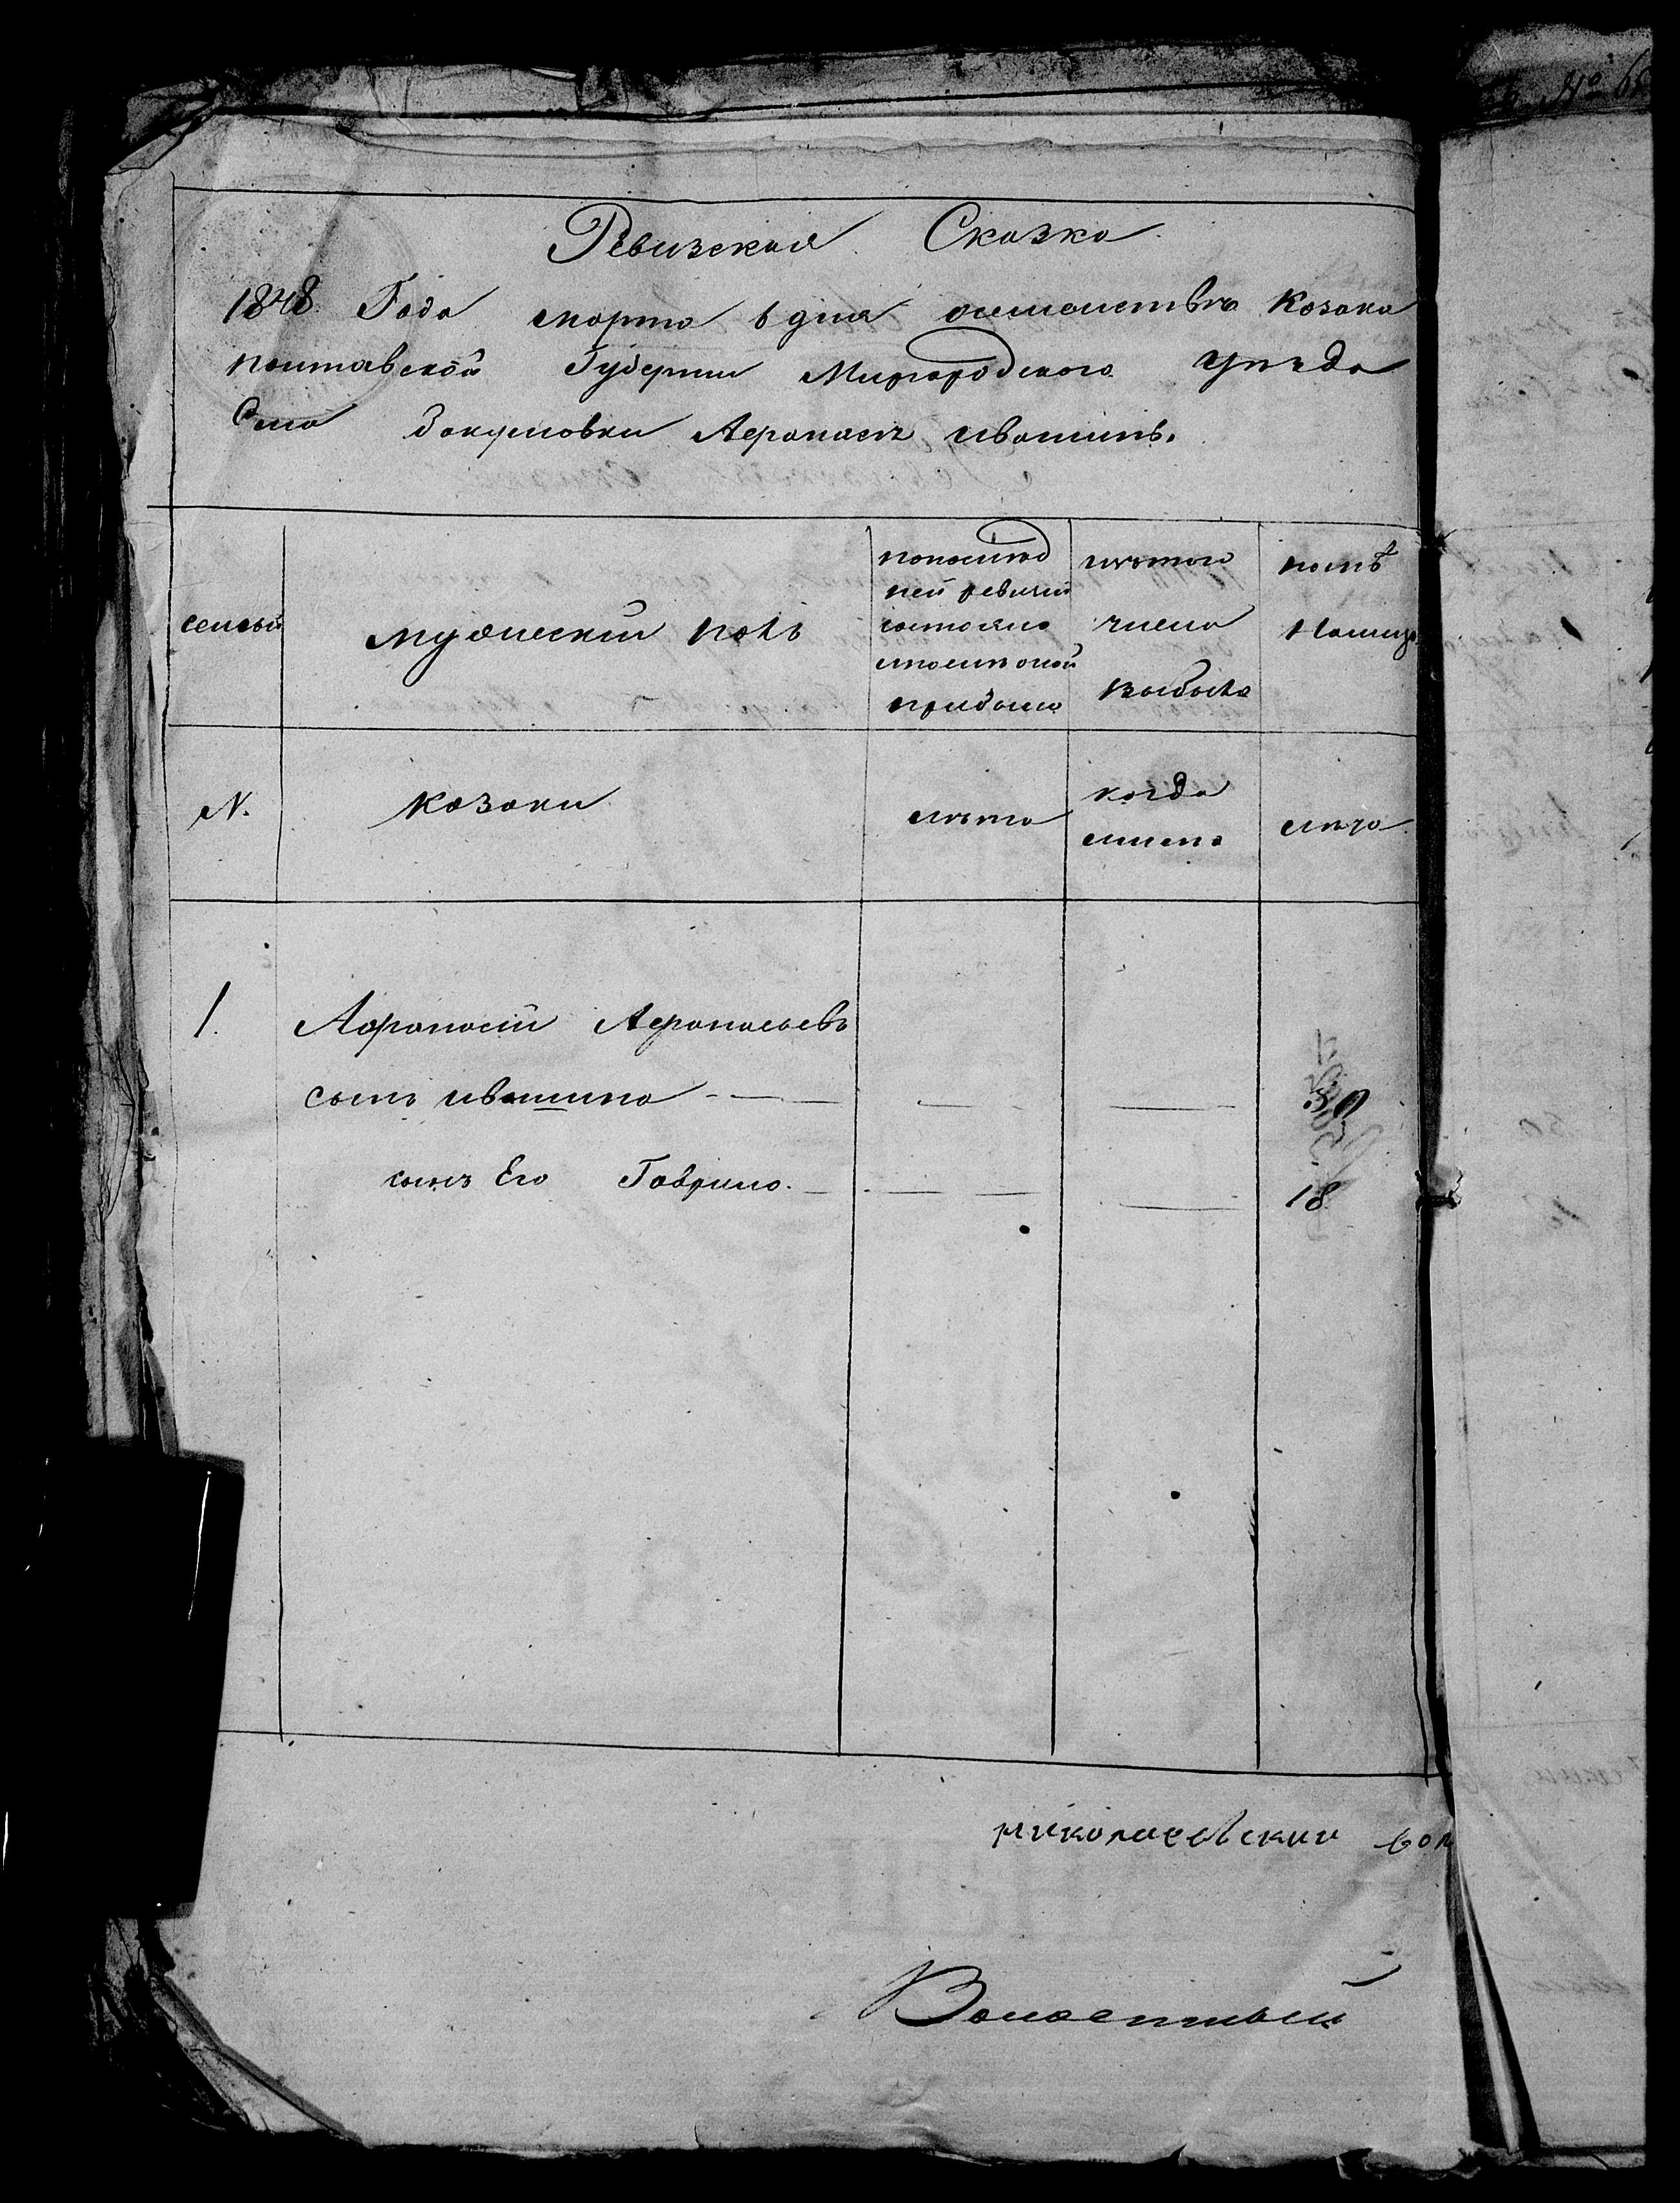 Ревизская Сказка
1848 Года марта 6 дня Козака
полтавской Губернии Миргородского уезда
Села Закумовки Афанасъ ивашинъ.
семьи
мужеский полъ
попослед
ней ревизии
состояло
после оной
прибыло
изътого
числа
выбыло
ныне
N.
козаки
лѣта
когда
имено
лѣта
1. Афонасiй Афанасьевъ
сынъ ивашина - — — — 50
сынъ Его Гаврило. — — — — 18
николаевский вол
Волостный
№ 65